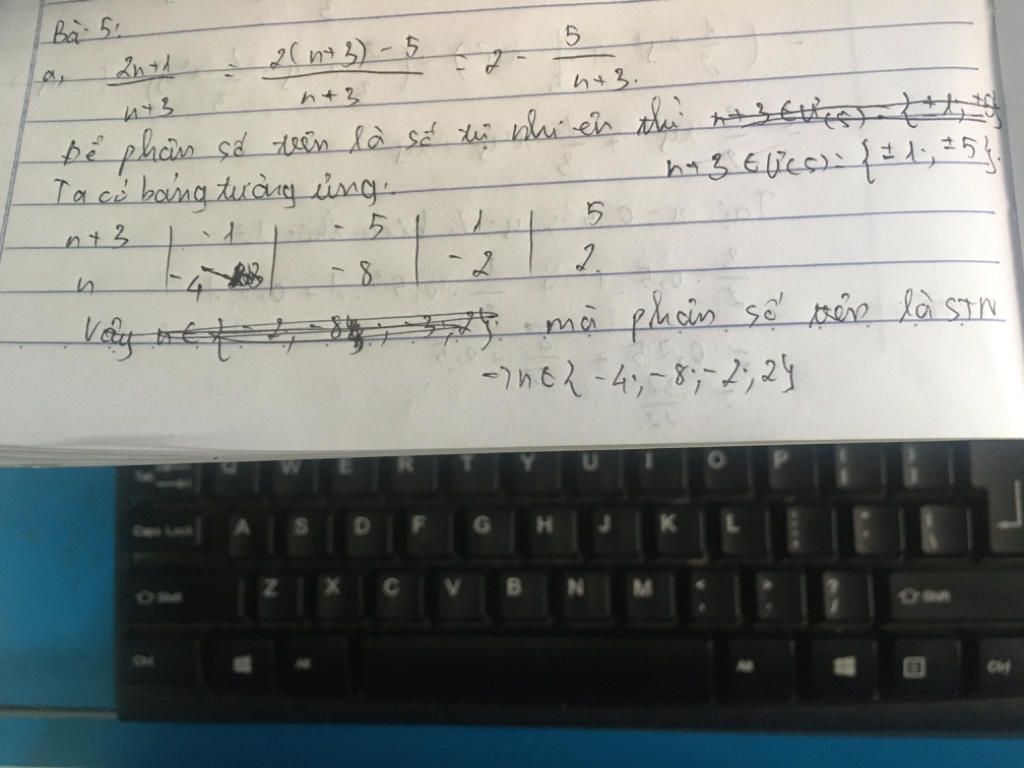 Bài 5:
a, 2n+1/n+3 = 2(n+3) - 5/n+3 = 2 - 5/n+3.
Để phân số trên là số tự nhiên thì n+3 ∈ Ư(5) = {±1; ±5}
n+3 ∈ Ư(5) = {±1; ±5}.
Ta có bảng tương ứng:
n+3 | -1 | -5 | 1 | 5
n | -4 | -8 | -2 | 2.
Vậy n ∈ { -2, -8; -3, 2}. mà phân số trên là STN
=> n ∈ { -4; -8; -2; 2}
Caps Lock A S D F G H J K L
Shift Z X C V B N M < , > . ? / Shift
Ctrl Alt Alt Ctrl